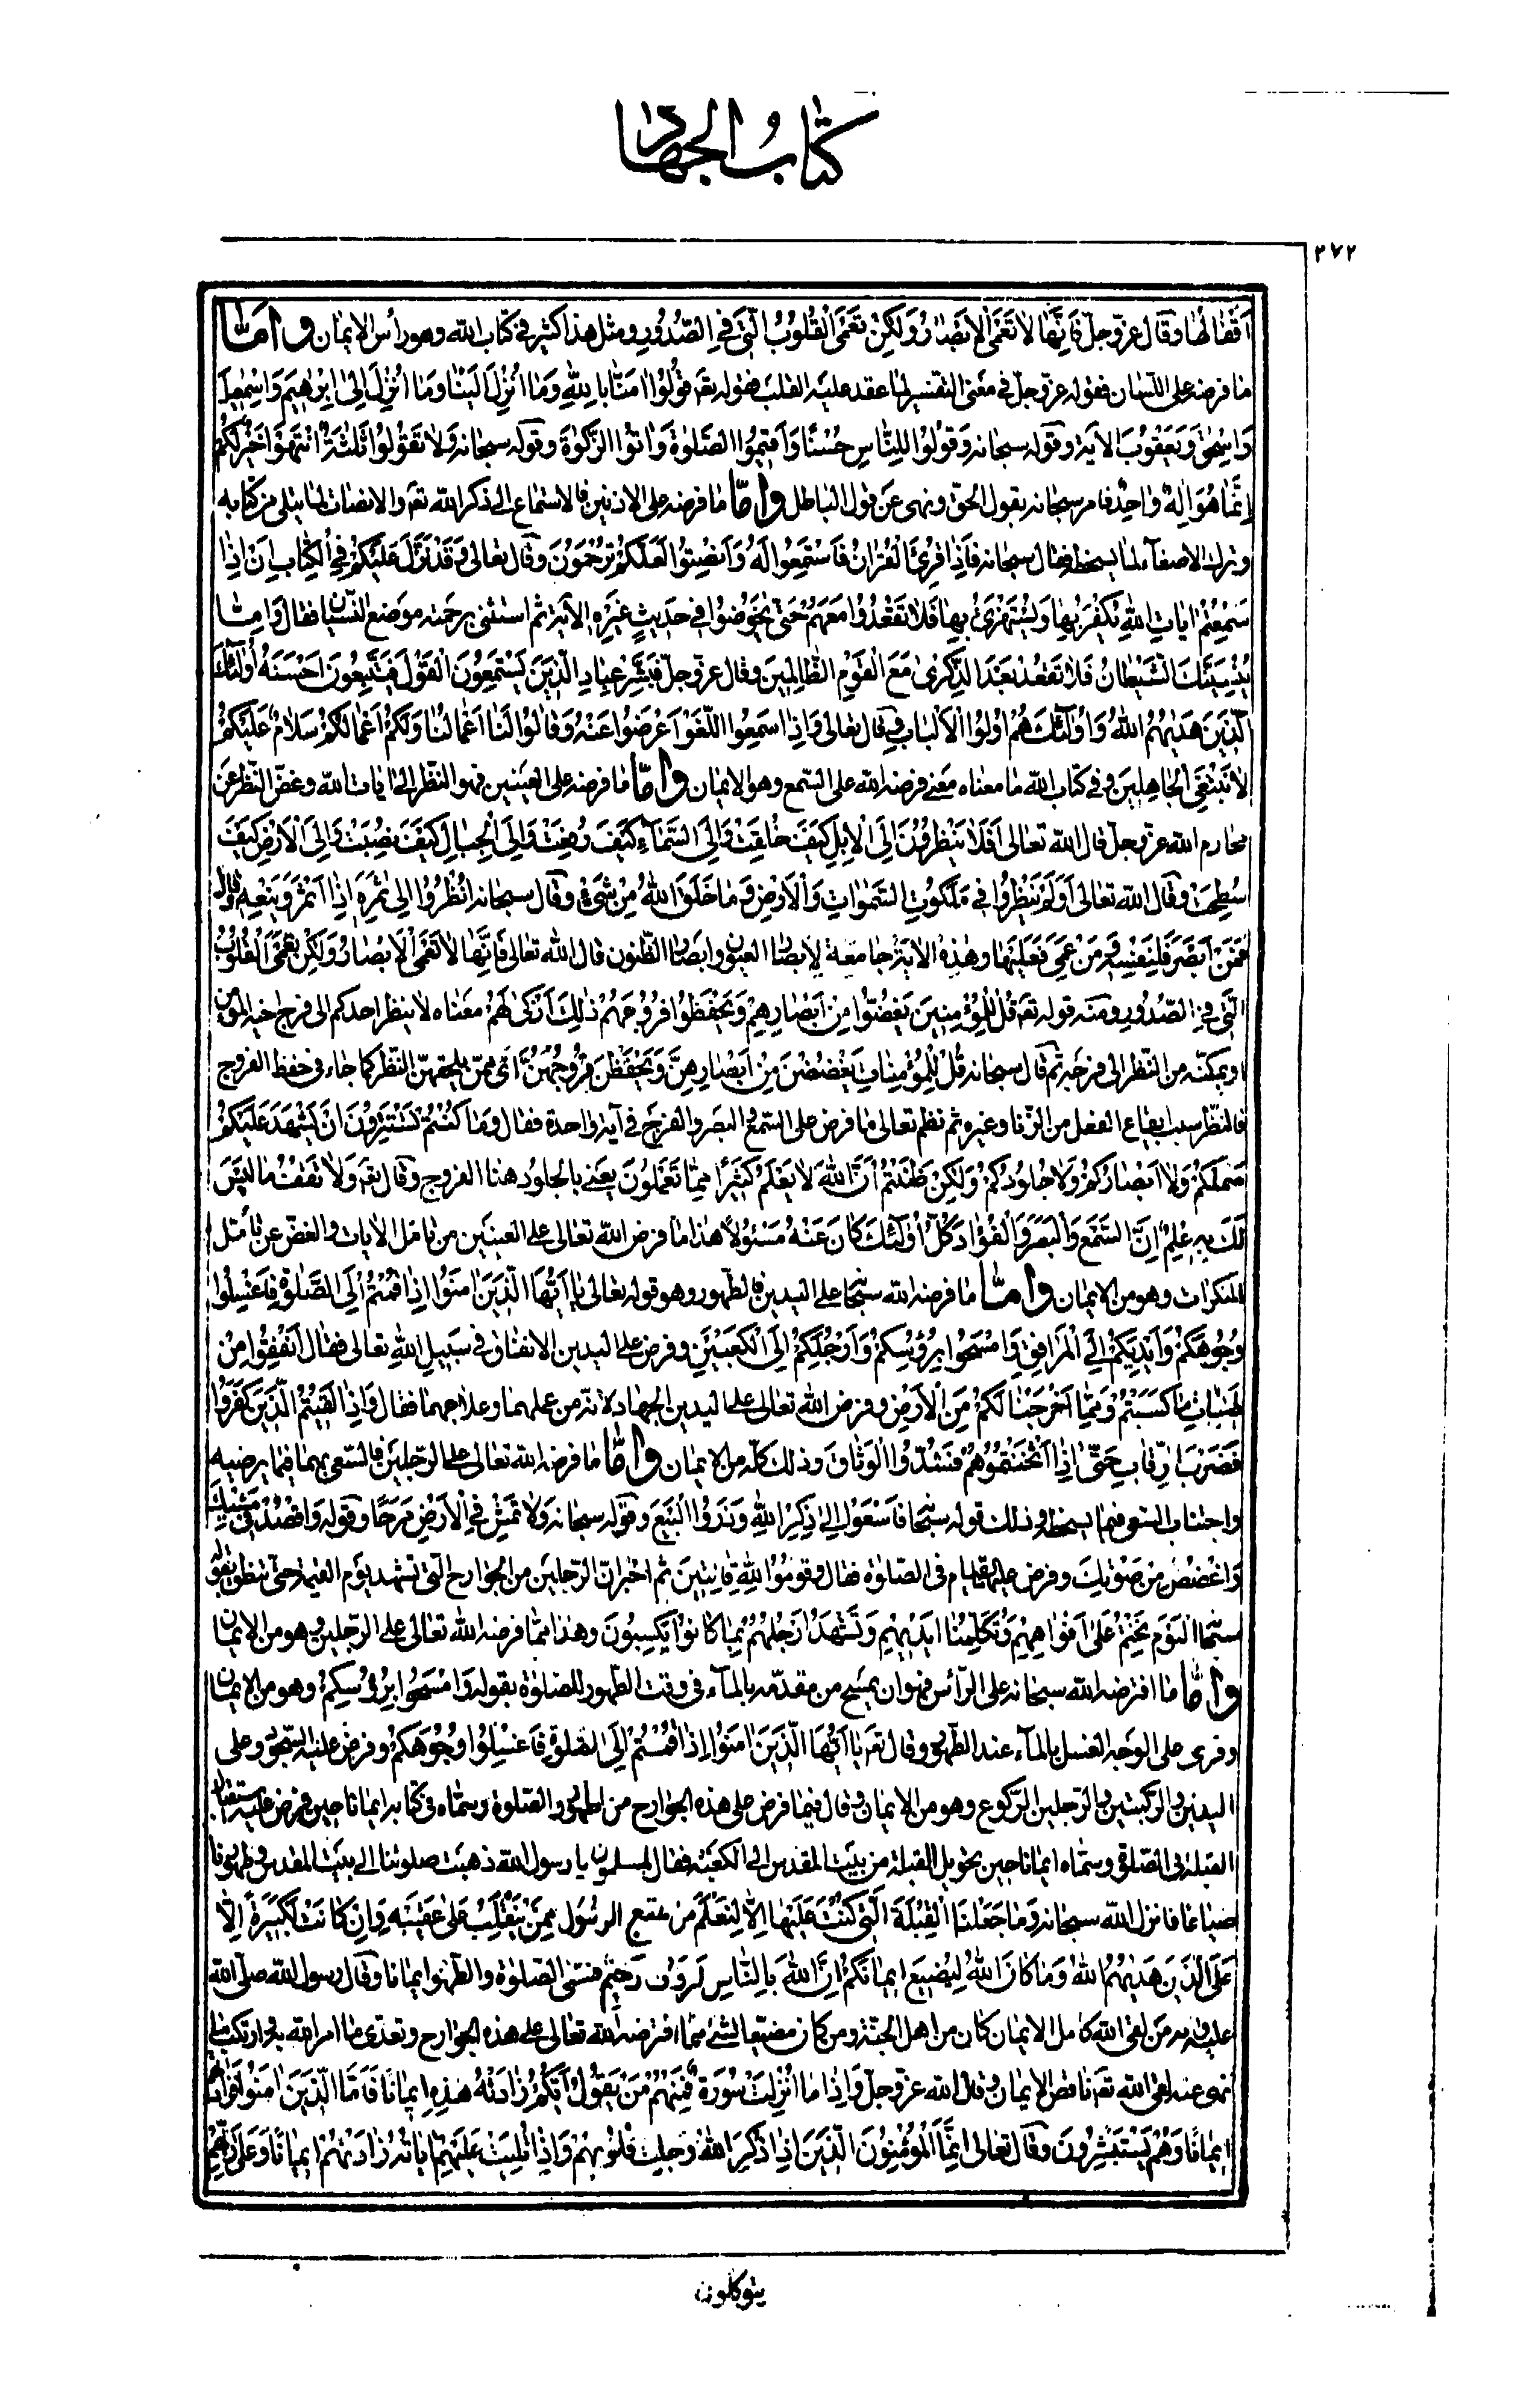 كتاب الجهاد
٢٧٢
اَقْفالُها وقال عزّ وجلّ فَاِنَّها لا تَعْمَى الْاَبْصارُ وَلكِنْ تَعْمَى الْقُلُوبُ الَّتى فِى الصُّدُورِ ومثل هذا كثير فى كتاب الله وهو رأس الايمان وامّا
ما فرضه على اللّسان فقوله عزّ وجلّ فى معنى التفسير لما عقد عليه القلب فقوله تعم قُولُوا امَنّا بِاللهِ وَما اُنْزِلَ اِلَيْنا وَما اُنْزِلَ اِلى اِبْرهيمَ وَاِسْمعيلَ
وَاِسْحقَ وَيَعْقُوبَ الاية وقوله سبحانه وَقُولُوا لِلنّاسِ حُسْنًا وَاَقيمُوا الصَّلوةَ وَاتُوا الزَّكوةَ وقوله سبحانه وَلا تَقُولُوا ثَلثَةٌ اِنْتَهُوا خَيْرًا لَكُمْ
اِنَّما هُوَ اِلهٌ واحِدٌ فامر سبحانه بقول الحقّ ونهى عن قول الباطل وامّا ما فرضه على الاذنين فالاستماع الى ذكر الله تعم والانصات لما يتلى من كتابه
وترك الاصغآء لما يسخطه فقال سبحانه فَاِذا قُرِئَ الْقُرْانُ فَاسْتَمِعُوا لَهُ وَاَنْصِتُوا لَعَلَّكُمْ تُرْحَمُونَ وقال تعالى وَقَدْ نَزَّلَ عَلَيْكُمْ فِى الْكِتابِ اَنْ اِذا
سَمِعْتُمْ اياتِ اللهِ يُكْفَرُ بِها وَيُسْتَهْزَئُ بِها فَلا تَقْعُدُوا مَعَهُمْ حَتّى يَخُوضُوا فى حَديثٍ غَيْرِهِ الاية ثم استثنى برحمته موضع النّسيان فقال وَاِمّا
يُنْسِيَنَّكَ الشَّيْطانُ فَلا تَقْعُدْ بَعْدَ الذِّكْرى مَعَ الْقَوْمِ الظّالِمينَ وقال عزّ وجلّ فَبَشِّرْ عِبادِ الَّذينَ يَسْتَمِعُونَ الْقَوْلَ فَيَتَّبِعُونَ اَحْسَنَهُ اُولئِكَ
الَّذينَ هَديهُمُ اللهُ وَاُولئِكَ هُمْ اُولُوا الْاَلْبابِ وقال تعالى وَاِذا سَمِعُوا اللَّغْوَ اَعْرَضُوا عَنْهُ وَقالُوا لَنا اَعْمالُنا وَلَكُمْ اَعْمالُكُمْ سَلامٌ عَلَيْكُمْ
لا نَبْتَغِى الْجاهِلينَ وفى كتاب الله ما معناه معنى ما فرضه الله على السّمع وهو الايمان وامّا ما فرضه على العينين فهو النّظر الى ايات الله وغضّ النّظر عن
محارم الله عزّ وجلّ قال الله تعالى اَفَلا يَنْظُرُونَ اِلَى الْاِبِلِ كَيْفَ خُلِقَتْ وَاِلَى السَّمآءِ كَيْفَ رُفِعَتْ وَاِلَى الْجِبالِ كَيْفَ نُصِبَتْ وَاِلَى الْاَرْضِ كَيْفَ
سُطِحَتْ وقال الله تعالى اَوَلَمْ يَنْظُرُوا فى مَلَكُوتِ السَّمواتِ وَالْاَرْضِ وَما خَلَقَ اللهُ مِنْ شَىْءٍ وقال سبحانه اُنْظُرُوا اِلى ثَمَرِه اِذا اَثْمَرَ وَيَنْعِه وقال
فَمَنْ اَبْصَرَ فَلِنَفْسِه وَمَنْ عَمِىَ فَعَلَيْها وهذه الاية جامعة لابصار العيون وابصار القلوب قال الله تعالى فَاِنَّها لا تَعْمَى الْاَبْصارُ وَلكِنْ تَعْمَى الْقُلُوبُ
الَّتى فِى الصُّدُورِ ومنه قوله تعم قُلْ لِلْمُؤْمِنينَ يَغُضُّوا مِنْ اَبْصارِهِمْ وَيَحْفَظُوا فُرُوجَهُمْ ذلِكَ اَزْكى لَهُمْ معناه لا ينظر احدكم الى فرج اخيه المؤمن
او يمكنه من النّظر الى فرجه ثم قال سبحانه قُلْ لِلْمُؤْمِناتِ يَغْضُضْنَ مِنْ اَبْصارِهِنَّ وَيَحْفَظْنَ فُرُوجَهُنَّ اى ممّن يلحقهنّ النّظر كما جاء فى حفظ الفروج
فالنّظر سبب ايقاع الفعل من الزّنا وغيره ثم نظم تعالى ما فرض على السّمع والبصر والفرج فى آية واحدة فقال وَما كُنْتُمْ تَسْتَتِرُونَ اَنْ يَشْهَدَ عَلَيْكُمْ
سَمْعُكُمْ وَلا اَبْصارُكُمْ وَلا جُلُودُكُمْ وَلكِنْ ظَنَنْتُمْ اَنَّ اللهَ لا يَعْلَمُ كَثيرًا مِمّا تَعْمَلُونَ يعنى بالجلود هنا الفروج وقال تعم وَلا تَقْفُ ما لَيْسَ
لَكَ بِه عِلْمٌ اِنَّ السَّمْعَ وَالْبَصَرَ وَالْفُؤادَ كُلُّ اُولئِكَ كانَ عَنْهُ مَسْئُولًا هذا ما فرض الله تعالى على العينين من تامّل الايات والغضّ عن تأمّل
المنكرات وهو من الايمان وامّا ما فرضه الله سبحانه على اليدين فالطّهور وهو قوله تعالى يا اَيُّهَا الَّذينَ امَنُوا اِذا قُمْتُمْ اِلَى الصَّلوةِ فَاغْسِلُوا
وُجُوهَكُمْ وَاَيْدِيَكُمْ اِلَى الْمَرافِقِ وَامْسَحُوا بِرُؤُسِكُمْ وَاَرْجُلَكُمْ اِلَى الْكَعْبَيْنِ وفرض على اليدين الانفاق فى سبيل الله تعالى فقال اَنْفِقُوا مِنْ
طَيِّباتِ ما كَسَبْتُمْ وَمِمّا اَخْرَجْنا لَكُمْ مِنَ الْاَرْضِ وفرض الله تعالى على اليدين الجهاد لانه من عملهما وعلاجهما فقال وَاِذا لَقيتُمُ الَّذينَ كَفَرُوا
فَضَرْبَ الرِّقابِ حَتّى اِذا اَثْخَنْتُمُوهُمْ فَشُدُّوا الْوَثاقَ وذلك كلّه من الايمان وامّا ما فرضه الله تعالى على الرّجلين فالسّعى بهما فيما يرضيه
واجتناب السّعى فيما يسخطه وذلك قوله سبحانه فَاسْعَوْا اِلى ذِكْرِ اللهِ وَذَرُوا الْبَيْعَ وقوله سبحانه وَلا تَمْشِ فِى الْاَرْضِ مَرَحًا وقوله وَاقْصِدْ فى مَشْيِكَ
وَاغْضُضْ مِنْ صَوْتِكَ وفرض عليهما القيام فى الصّلوة فقال وَقُومُوا لِلهِ قانِتينَ ثم اخبر ان الرّجلين من الجوارح التى تشهد يوم القيمة حتى تستنطق بقوله
سبحانه اَلْيَوْمَ نَخْتِمُ عَلى اَفْواهِهِمْ وَتُكَلِّمُنا اَيْديهِمْ وَتَشْهَدُ اَرْجُلُهُمْ بِما كانُوا يَكْسِبُونَ وهذا ممّا فرضه الله تعالى على الرّجلين وهو من الايمان
وامّا ما افترضه الله سبحانه على الرّأس فهو ان يمسح من مقدّمه بالمآء فى وقت الطّهور للصّلوة بقوله وَامْسَحُوا بِرُؤُسِكُمْ وهو من الايمان
وفرض على الوجه الغسل بالمآء عند الطّهور وقال تعم يا اَيُّهَا الَّذينَ امَنُوا اِذا قُمْتُمْ اِلَى الصَّلوةِ فَاغْسِلُوا وُجُوهَكُمْ وفرض عليه السّجود وعلى
اليدين والرّكبتين والرّجلين الرّكوع وهو من الايمان وقال فيما فرض على هذه الجوارح من الطّهور والصّلوة وسمّاه فى كتابه ايمانا حين فرض عليه استقبال
القبلة فى الصّلوة وسمّاه ايمانا حين تحويل القبلة من بيت المقدس الى الكعبة فقال المسلمون يا رسول الله ذهبت صلوتنا الى بيت المقدس وطهورنا
ضياعا فانزل الله سبحانه وَما جَعَلْنَا الْقِبْلَةَ الَّتى كُنْتَ عَلَيْها اِلّا لِنَعْلَمَ مَنْ يتبع الرَّسُولَ مِمَّنْ يَنْقَلِبُ عَلى عَقِبَيْهِ وَاِنْ كانَتْ لَكَبيرَةً اِلّا
عَلَى الَّذينَ هَديهُمُ اللهُ وَما كانَ اللهُ لِيُضيعَ ايمانَكُمْ اِنَّ اللهَ بِالنّاسِ لَرَؤُفٌ رَحيمٌ فسمّى الصّلوة والطّهور ايمانا وقال رسول الله صلى الله
عليه وآله من لقى الله كامل الايمان كان من اهل الجنّة ومن كان مضيّعا لشئ ممّا افترضه الله تعالى على هذه الجوارح وتعدّى ما امر الله به وارتكب ما
نهى عنه لقى الله تعم ناقص الايمان وقال الله عزّ وجلّ وَاِذا ما اُنْزِلَتْ سُورَةٌ فَمِنْهُمْ مَنْ يَقُولُ اَيُّكُمْ زادَتْهُ هذِه ايمانًا فَاَمَّا الَّذينَ امَنُوا فَزادَتْهُمْ
ايمانًا وَهُمْ يَسْتَبْشِرُونَ وقال تعالى اِنَّمَا الْمُؤْمِنُونَ الَّذينَ اِذا ذُكِرَ اللهُ وَجِلَتْ قُلُوبُهُمْ وَاِذا تُلِيَتْ عَلَيْهِمْ اياتُهُ زادَتْهُمْ ايمانًا وَعَلى رَبِّهِمْ
يتوكلون